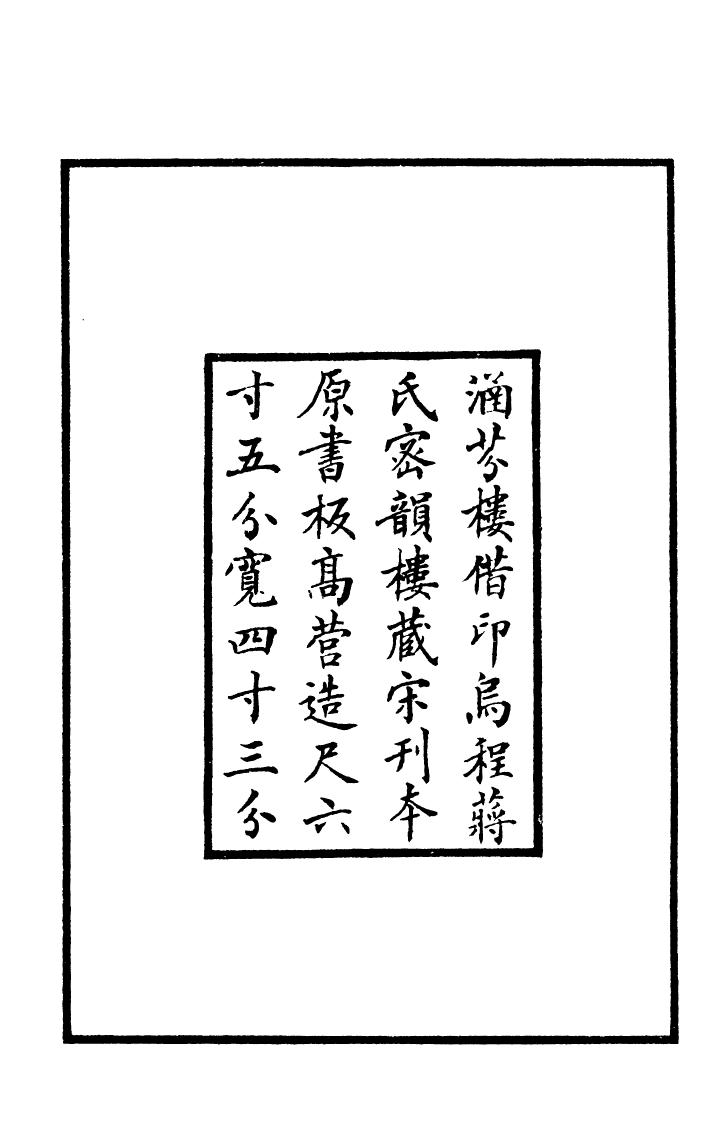 涵芬樓借印烏程蔣
氏密韻樓藏宋刊本
原書板髙營造尺六
寸五分寬四寸三分